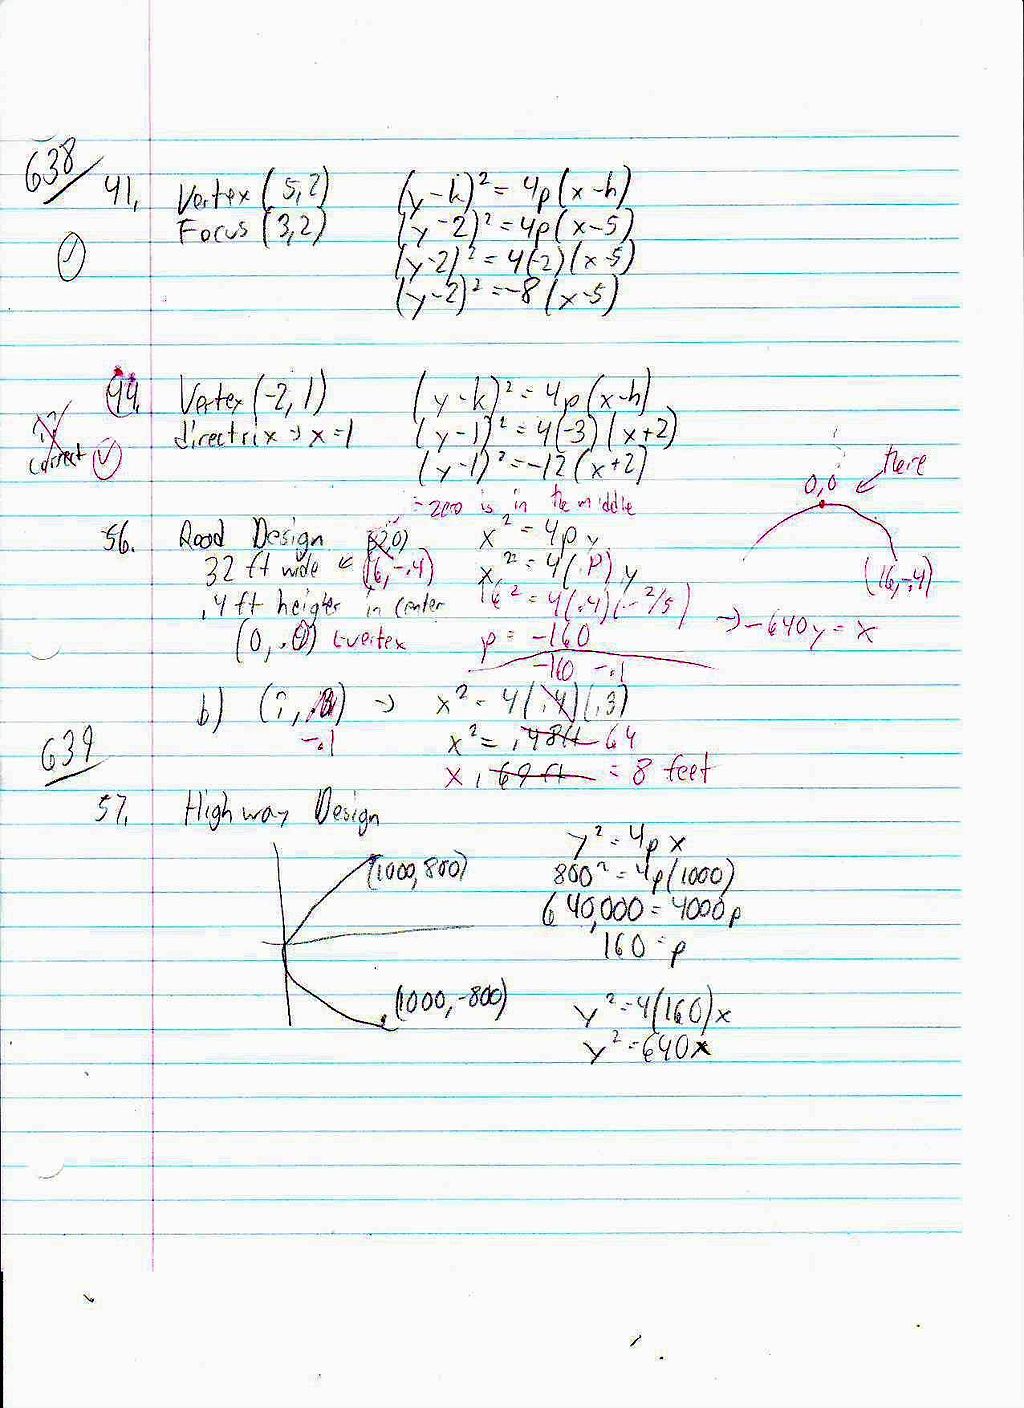 638
41. Vertex (5,2) (y-k)² = 4p(x-h)
Focus (3,2) (y-2)² = 4p(x-5)
(y-2)² = 4(-2)(x-5)
(y-2)² = -8(x-5)
44. Vertex (-2,1) (y-k)² = 4p(x-h)
directrix → x=1 (y-1)² = 4(-3)(x+2)
correct (y-1)² = -12(x+2)
= zero is in the middle
0,0 there
56. Road Design x² = 4py
32 ft wide (16,-.4) x² = 4(.P)y (16,-.4)
.4 ft heigter in center 16² = 4(.4)(-2/5) → -640y = x
(0,.0) ←vertex p = -160
-160 -.1
b) (?, ) → x² = 4(.4)(.3)
-.1 x² = .48ft 64
639
x .69ft = 8 feet
57. Highway Design
y² = 4px
(1000,800) 800² = 4p(1000)
640,000 = 4000p
160 = p
(1000,-800) y² = 4(160)x
y² = 640x